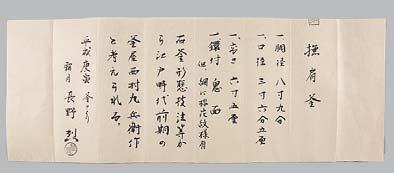 撫肩釜
一胴径 八寸九分
一、口径 三寸六分五厘
一、高さ 六寸五厘
一、鐶付 鬼面
但、胴に 花紋様有
右釜形態技法等か
ら江戸時代前期の
釜屋西村九兵衛作
と考えられる。
平成庚寅
霜月 長野 烈